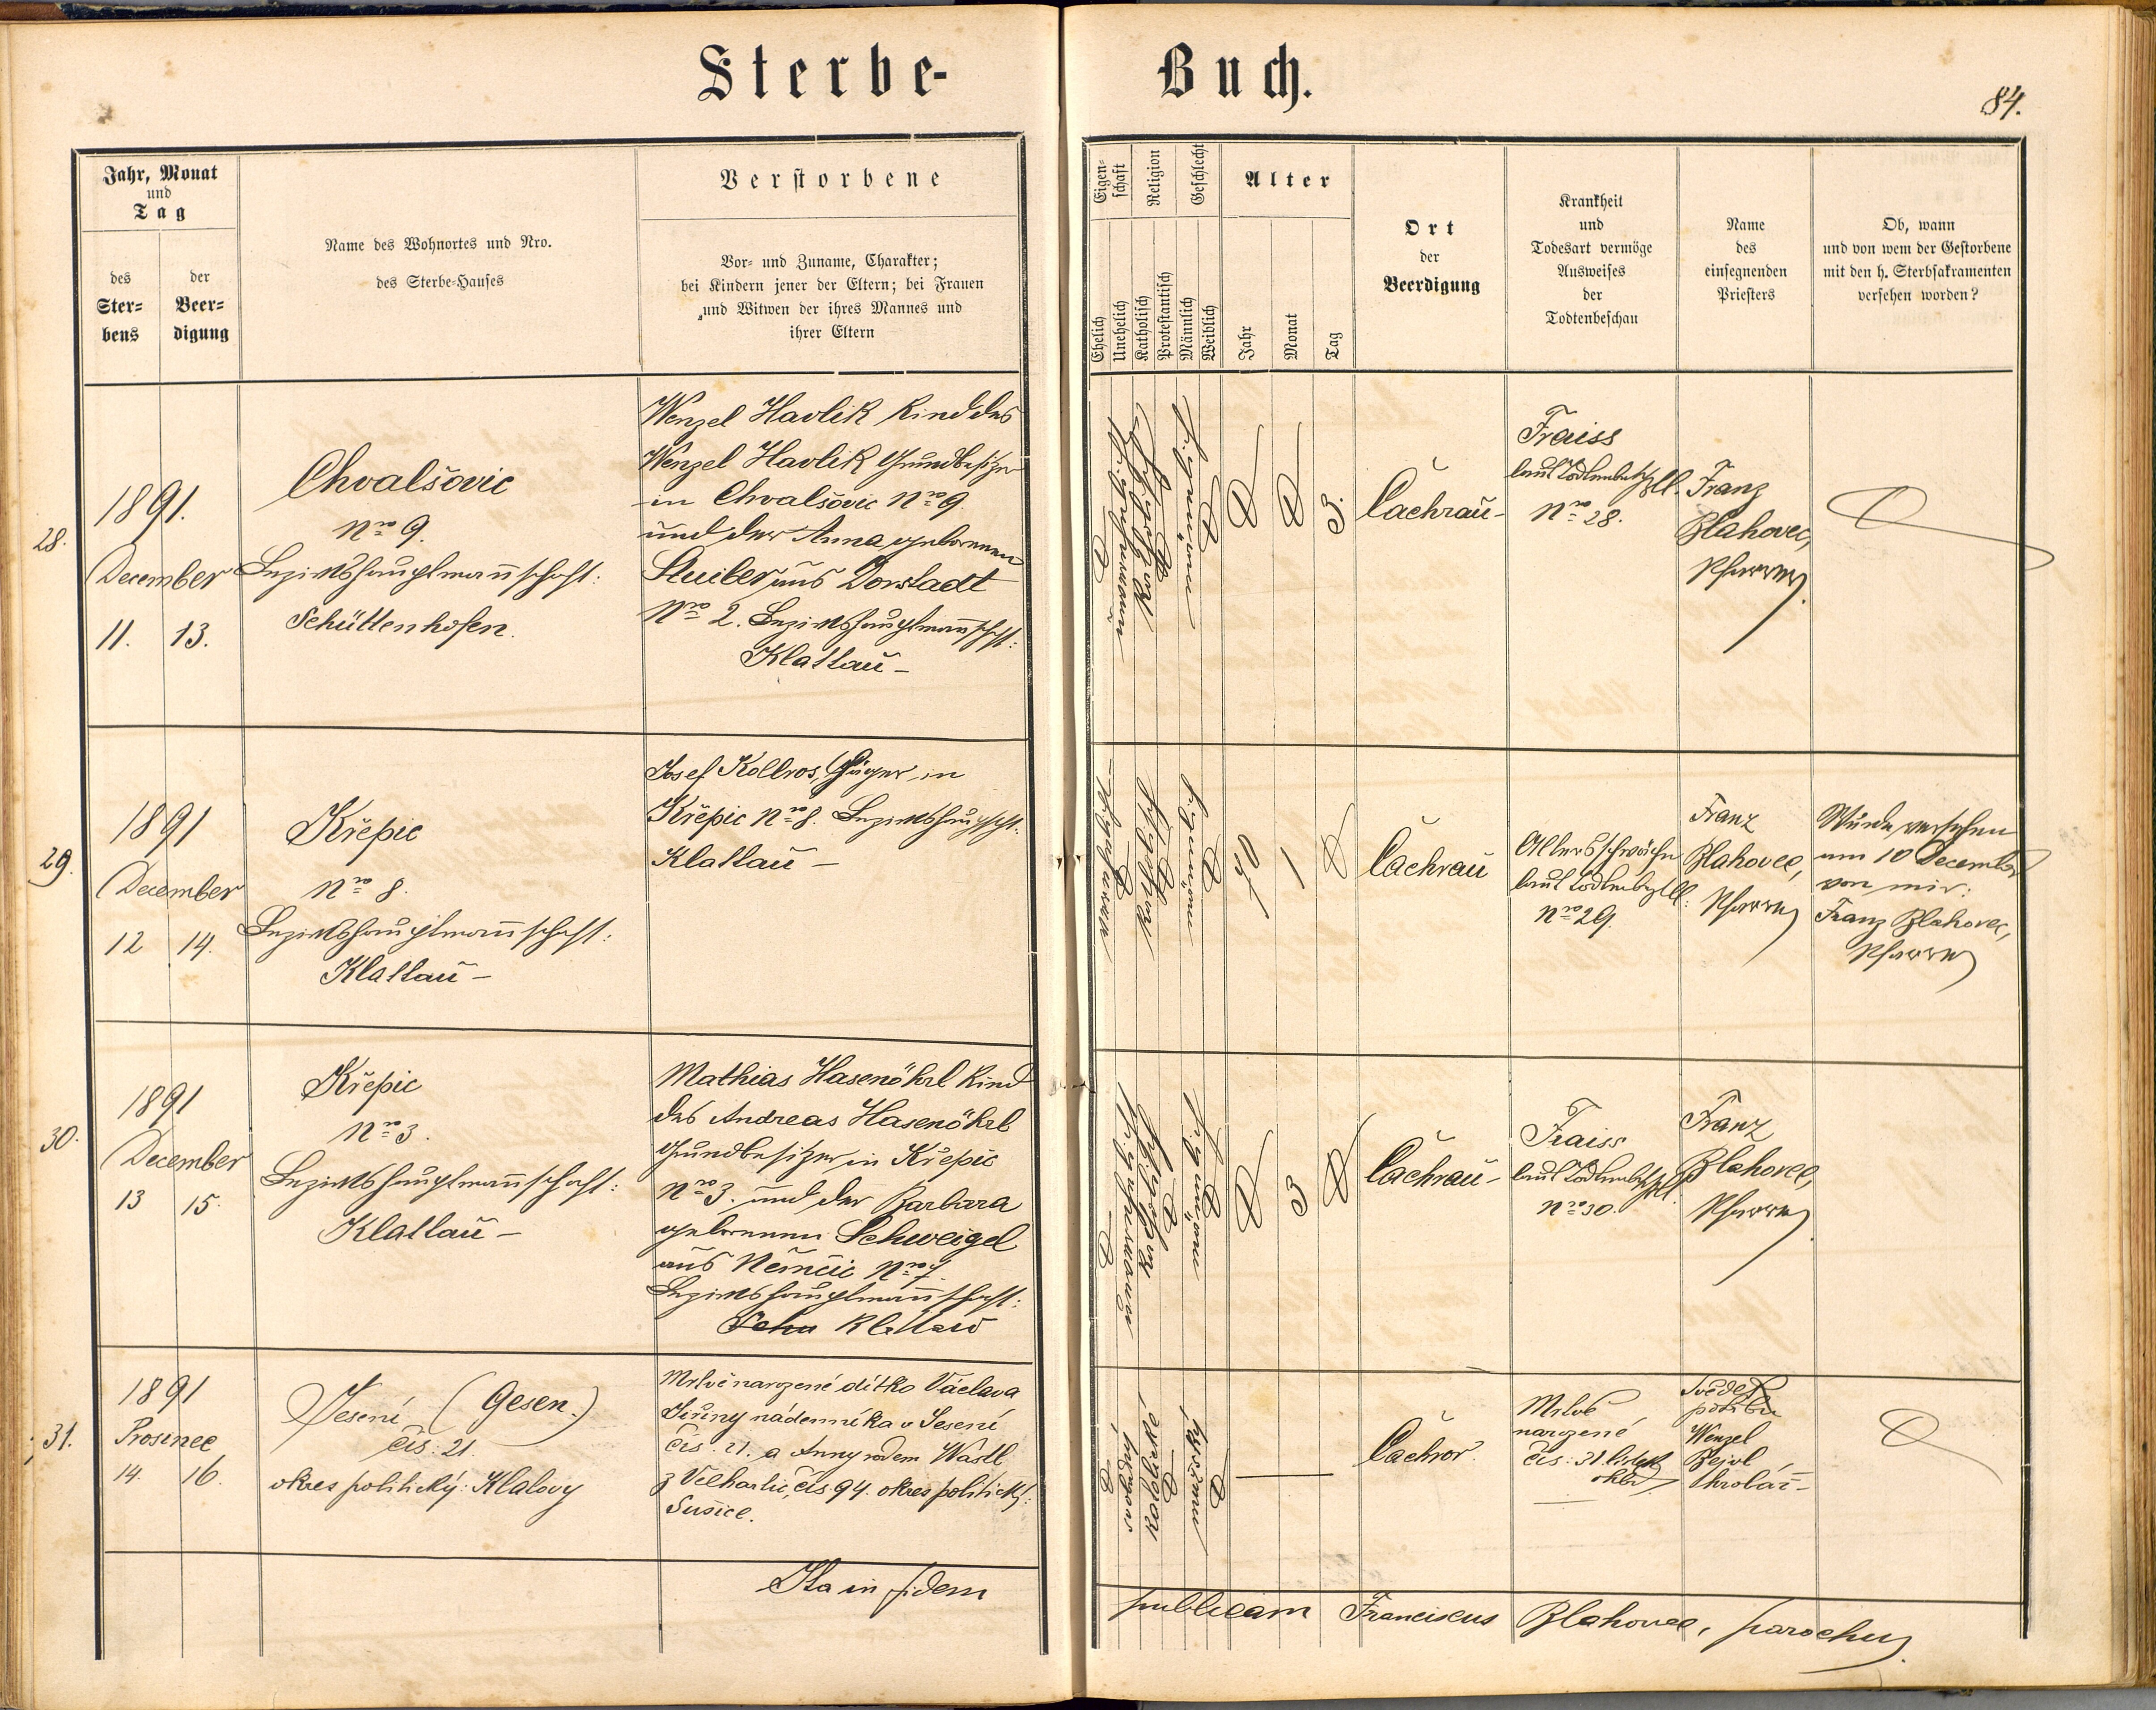 Sterbe-
Buch.
84.
Jahr, Monat
und
Tag
des
Ster-
bens
der
Beer-
digung
Name des Wohnortes und Nro.
des Sterbe-Hauses
Verstorbene
Vor- und Zuname, Charakter;
bei Kindern jener der Eltern; bei Frauen
und Witwen der ihres Mannes und
ihrer Eltern
Eigen-
schaft
Ehelich
Unehelich
Religion
Katholisch
Protestantisch
Geschlecht
Männlich
Weiblich
Alter
Jahr
Monat
Tag
Ort
der
Beerdigung
Krankheit
und
Todesart vermöge
Ausweises
der
Todtenbeschau
Name
des
einsegnenden
Priesters
Ob, wann
und von wem der Gestorbene
mit den h. Sterbsakramenten
versehen worden?
28.
1891.
December
11. 13.
Chvalšovic
Nro 9.
Bezirkshauptmannschaft:
Schüttenhofen.
Wenzel Havlik Kind des
Wenzel Havlik Grundbesitzer
in Chvalšovic Nro 9.
und der Anna geborenen
Stuiber aus Dorstadt
Nro 2. Bezirkshauptmannschft:
Klattau –
3.
Čachrau –
Fraiss
laut
Nro 28.
Franz
Blahovec,
Pfarrer
29.
1891
December
12 14.
Křepic
Nro 8.
Bezirkshauptmannschaft:
Klattau –
Josef Kollros, Häger in
Křepic Nro 8. Bezirkshauptsch.
Klattau –
1
Čachrau
Altersschwäche
laut
Nro 29.
Franz
Blahovec,
Pfarrer
Wurde versehen
am 10 December
von mir:
Franz Blahovec,
Pfarrer
30.
1891
December
13 15.
Křepic
Nro 3.
Bezirkshauptmannschaft:
Klattau –
Mathias Hasenöhrl Kind
des Andreas Hasenöhrl
Grundbesitzer in Křepic
Nro 3. und der Barbara
geborenen Schweigel
aus Němčic Nro 7.
Bezirkshauptmannschaft:
Klattau
3
Čachrau –
Fraiss
laut
Nro 30.
Franz
Blahovec,
Pfarrer
31.
1891
Prosinec
14. 16.
Jesení (Gesen.)
čis: 21.
okres politický: Klatovy
Mrtvě narozené dítko Václava
Jiřiny nádenníka v Jesení
čis. 21. a Anny rodem Wastl
z Velhartic, čís 94. okres politický:
Sušice.
Čachrov.
Mrtvě
narozené
čis: 31. lístek
ohled.
Svědek
pohřbu
Wenzel
Bejvl,
hrobař –
Ita in fidem
publicam Franciscus Blahovec, parochus.